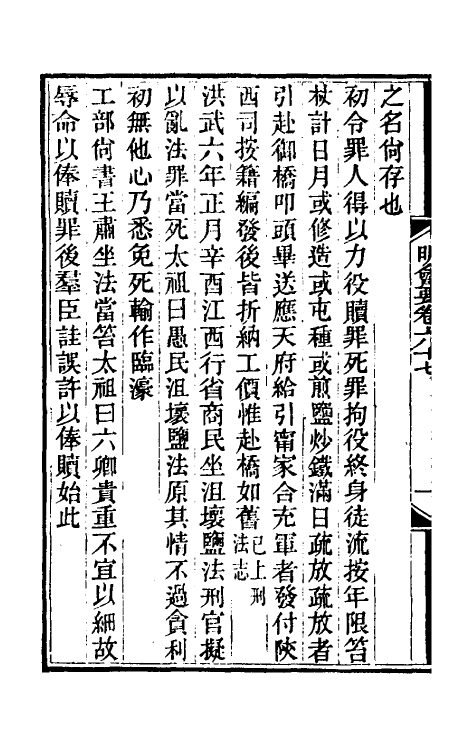 之名尙存也
初令罪人得以力役贖罪死罪拘役終身徒流按年限笞
杖計日月或修造或屯種或煎鹽炒鐵滿日疏放疏放者
引赴御橋叩頭畢送應天府給引甯家合充軍者發付陝
西司按籍編發後皆折納工價惟赴橋如舊已上刑法志
洪武六年正月辛酉江西行省商民坐沮壞鹽法刑官擬
以亂法罪當死太祖曰愚民沮壞鹽法原其情不過貪利
初無他心乃悉免死輸作臨濠
工部尙書王肅坐法當笞太祖曰六卿貴重不宜以細故
辱命以俸贖罪後羣臣詿誤許以俸贖始此
明會要卷六十七
一